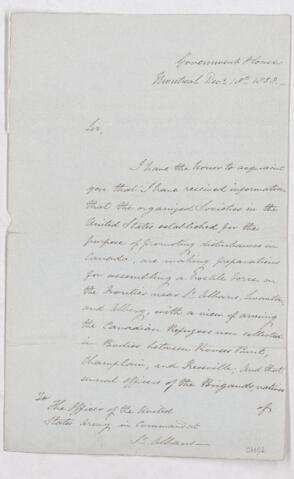 Government House
Montreal Decr 18th 1838.
Sir,
I have the honor to acquaint
you that I have received information
that the organized Societies in the
United States established for the
purpose of promoting disturbances in
Canada, are making preparations
for assembling a hostile force on
the Frontier near St Albans, Swanton,
and Alburg, with a view of arming
the Canadian Refugees now collected
in Bodies between Rouses Point,
Champlain, and and that
several officers of the Brigands natives
of
To
The Officer of the United
States Army in Command at
St Albans